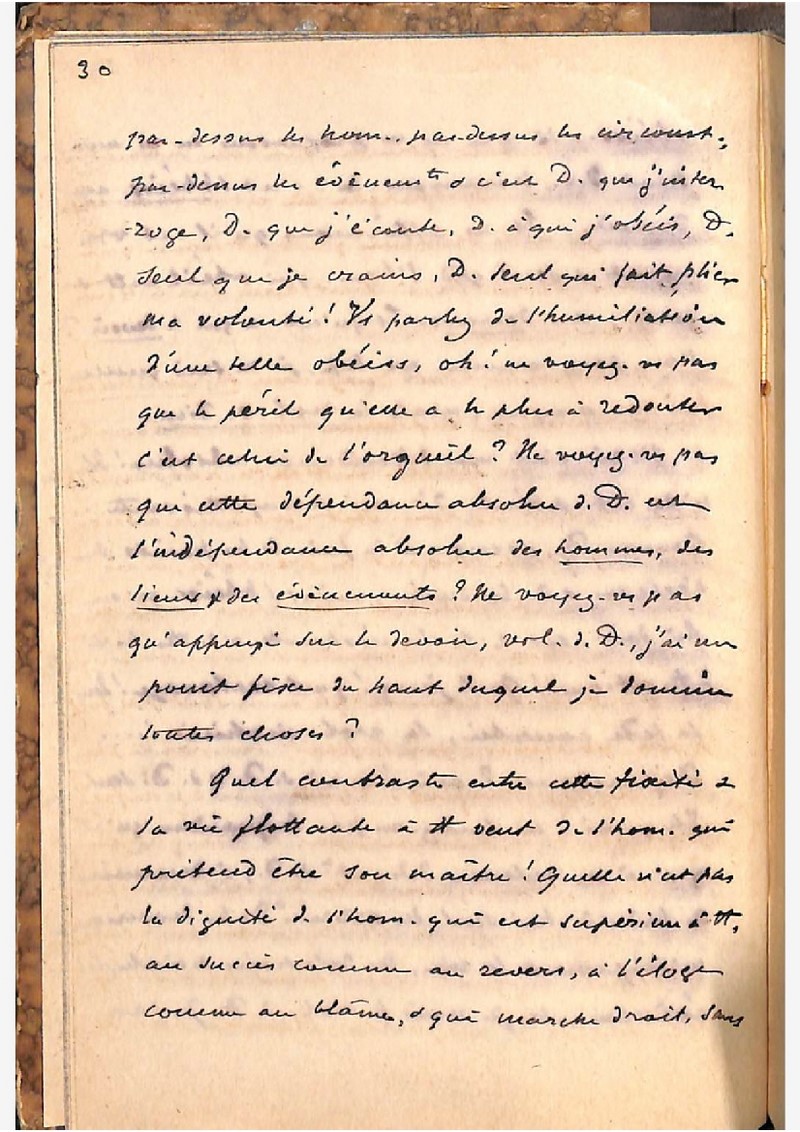 30
par-dessus les hom., par-dessus les circonst.,
par-dessus les évènem^ts & c'est D. que j'inter
-roge, D. que j'écoute, D. à qui j'obéis, D.
seul que je crains, D. seul qui fait plier
ma volonté ! Vs parlez de l'humiliation
d'une telle obéiss, oh ! ne voyez-vs pas
que le péril qu'elle a le plus à redouter
c'est celui de l'orgueil ? Ne voyez-vs pas
que cette dépendance absolue d. D. est
l'indépendance absolue des hommes, des
lieux & des évènements ? Ne voyez-vs pas
qu'appuyé sur le devoir, vol. d. D., j'ai un
point fixe du haut duquel je domine
toutes choses ?
Quel contraste entre cette fixité &
la vie flottante à tt vent de l'hom. qui
prétend être son maître ! Quelle n'est pas
la dignité de l'hom. qui est supérieur à tt,
au succès comme au revers, à l'éloge
comme au blâme, & qui marche droit, sans